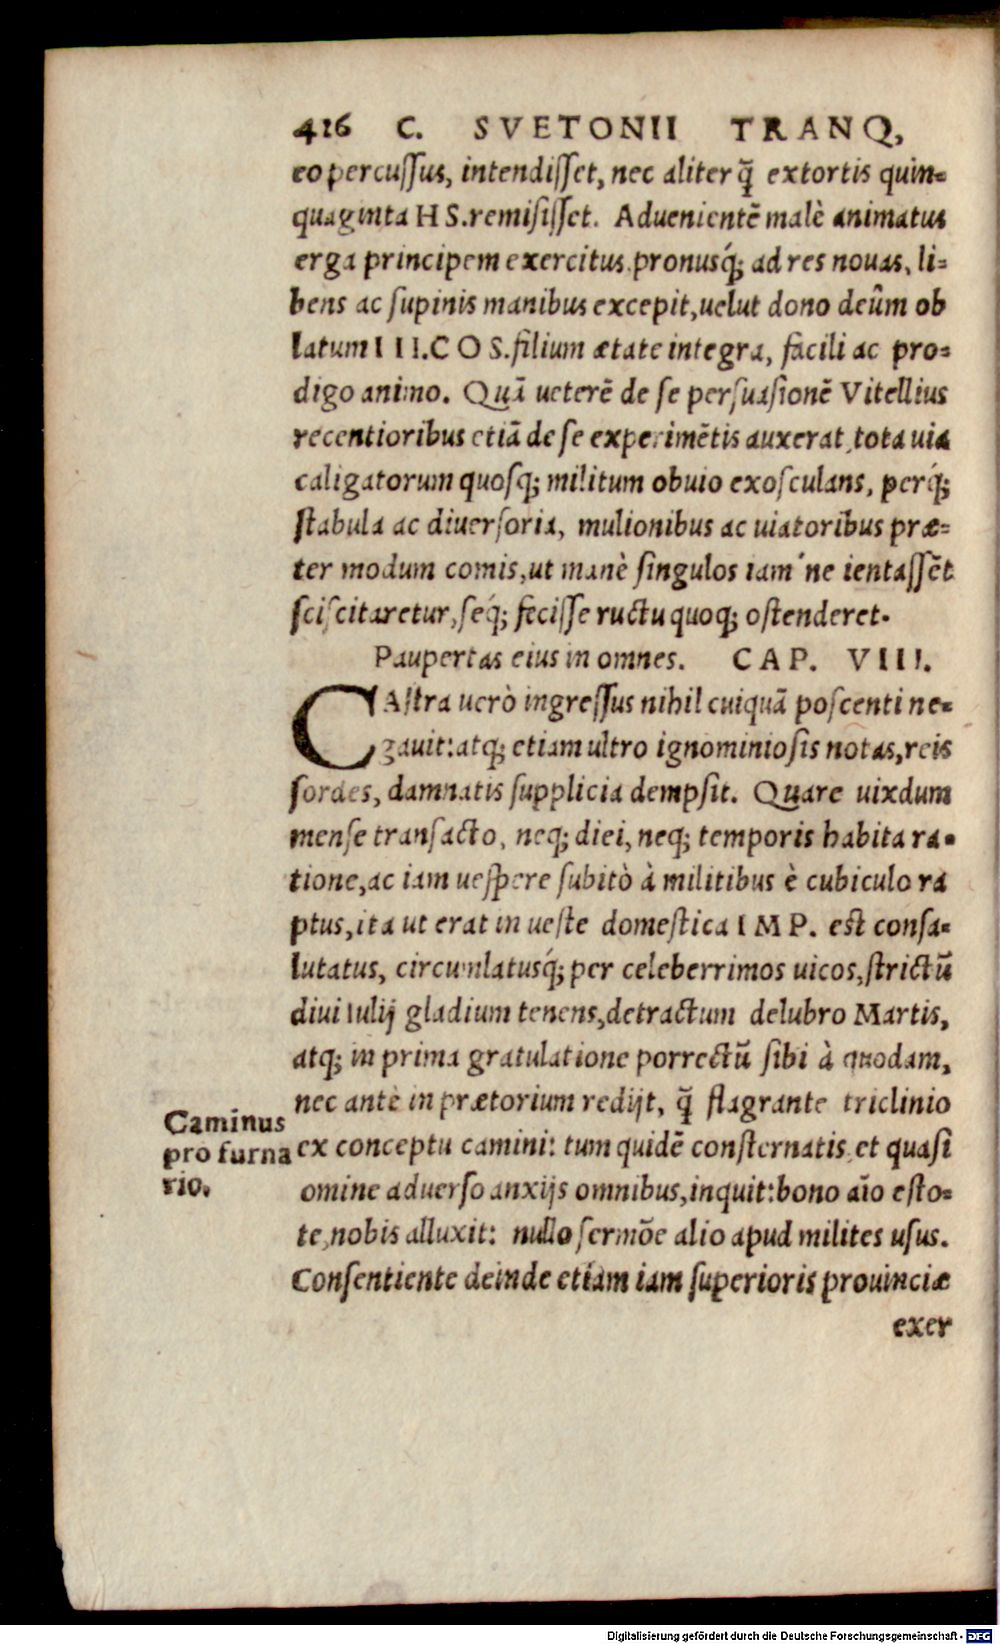 416 C. SVETONII TRANQ,
eo percuſſus, intendiſſet, nec aliter q̃ extortis quin-
quaginta HS.remiſiſſet. Aduenientē malè animatus
erga principem exercitus pronusq́; ad res nouas, li-
bens ac ſupinis manibus excepit,uelut dono deûm ob
latum III.COS.filium ætate integra, facili ac pro-
digo animo. Quā ueterē de ſe perſuaſionē Vitellius
recentioribus etiā de ſe experimētis auxerat, tota uia
caligatorum quoſq; militum obuio exoſculans, perq́;
ſtabula ac diuerſoria, mulionibus ac uiatoribus præ-
ter modum comis,ut manè ſingulos iam'ne ientaſſēt
ſciſcitaretur,ſeq́; feciſſe ructu quoq; oſtenderet.
Paupertas eius in omnes. CAP. VIII.
CAſtra uerò ingreſſus nihil cuiquā poſcenti ne-
gauit:atq; etiam ultro ignominioſis notas,reis
ſordes, damnatis ſupplicia dempſit. Quare uixdum
menſe tranſacto, neq; diei, neq; temporis habita ra-
tione,ac iam ueſpere ſubitò à militibus è cubiculo ra
ptus,ita ut erat in ueſte domeſtica IMP. eſt conſa-
lutatus, circumlatusq́; per celeberrimos uicos,ſtrictū
diui Iulij gladium tenens,detractum delubro Martis,
atq; in prima gratulatione porrectū ſibi à quodam,
nec antè in prætorium redijt, q̃ flagrante triclinio
ex conceptu camini: tum quidē conſternatis, et quaſi
omine aduerſo anxijs omnibus,inquit:bono aīo eſto-
te,nobis alluxit: nullo ſermōe alio apud milites uſus.
Conſentiente deinde etiam iam ſuperioris prouinciæ
exer
Caminus
pro furna
rio.
Digitalisierung gefördert durch die Deutsche Forschungsgemeinschaft - DFG